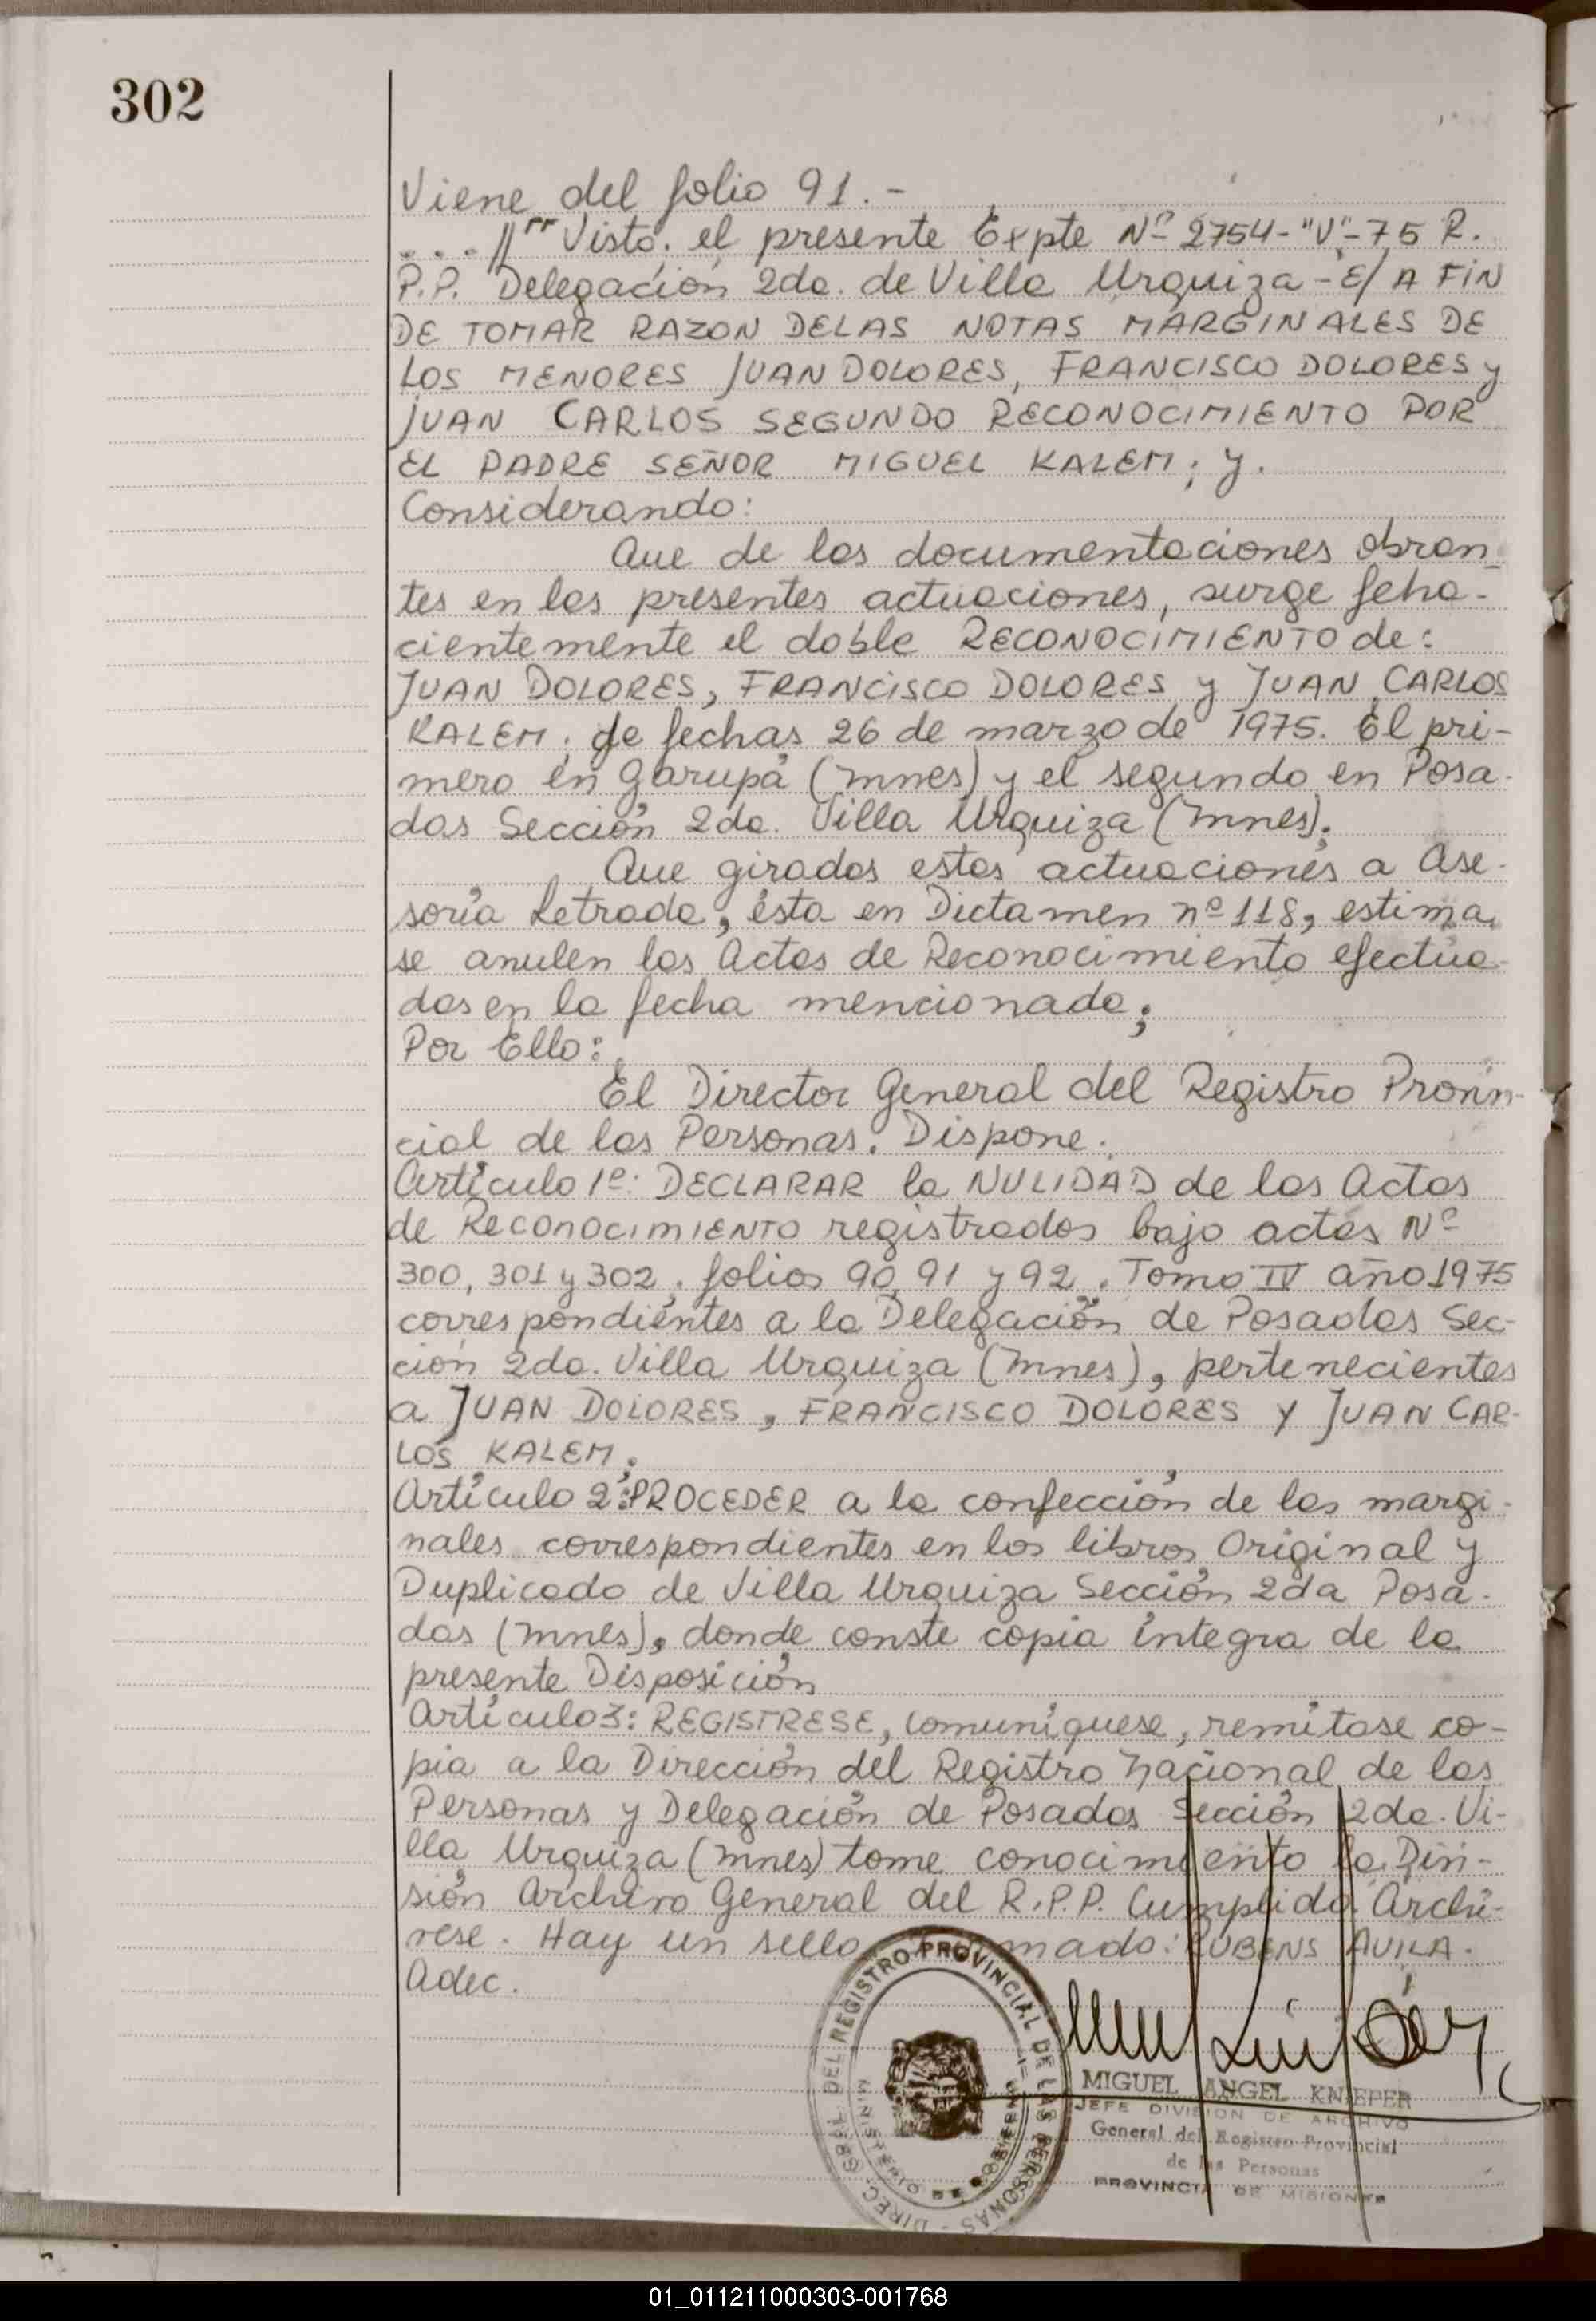 302
Viene del folio 91.-
....//"" Visto: el presente Expte Nº 2754-"V"-75 R.
P.P. Delegación 2da. de Villa Urquiza - E/ A FIN
DE TOMAR RAZON DE LAS NOTAS MARGINALES DE
LOS MENORES JUAN DOLORES, FRANCISCO DOLORES y
JUAN CARLOS SEGUNDO RECONOCIMIENTO POR
EL PADRE SEÑOR MIGUEL KALEM; y.
Considerando:
Que de las documentaciones obran-
tes en las presentes actuaciones, surge feha-
cientemente el doble RECONOCIMIENTO de:
JUAN DOLORES, FRANCISCO DOLORES y JUAN CARLOS
KALEM, de fechas 26 de marzo de 1975. El pri-
mero en Garupá (Mnes) y el segundo en Posa-
das Sección 2da. Villa Urquiza (Mnes).
Que giradas estas actuaciones a Ase-
soría Letrada, ésta en Dictamen nº 118, estima
se anulen las Actas de Reconocimiento efectua-
das en la fecha mencionada;
Por Ello:
El Director General del Registro Provin-
cial de las Personas. Dispone.
Artículo 1º: DECLARAR la NULIDAD de las Actas
de RECONOCIMIENTO registrados bajo actas Nº
300, 301 y 302, folios 90, 91 y 92. Tomo IV año 1975
correspondientes a la Delegación de Posadas Sec-
ción 2da. Villa Urquiza (Mnes), pertenecientes
a JUAN DOLORES, FRANCISCO DOLORES Y JUAN CAR-
LOS KALEM;
Artículo 2º: PROCEDER a la confección de las margi-
nales correspondientes en los libros Original y
Duplicado de Villa Urquiza Sección 2da Posa-
das (Mnes), donde conste copia íntegra de la
presente Disposición
Artículo 3: REGISTRESE, comuníquese, remítase co-
pia a la Dirección del Registro Nacional de las
Personas y Delegación de Posadas Sección 2da. Vi-
lla Urquiza (Mnes) tome conocimiento la Divi-
sión Archivo General del R.P.P. Cumplido Archí-
vese. Hay un sello mado: RUBENS AVILA.
Adec.
DIREC. GRAL. DEL REGISTRO PROVINCIAL DE LAS PERSONAS
MINISTERIO DE GOBIERNO
MIGUEL ANGEL KNIEPER
JEFE DIVISION DE ARCHIVO
General del Registro Provincial
de las Personas
PROVINCIA DE MISIONES
01_011211000303-001768